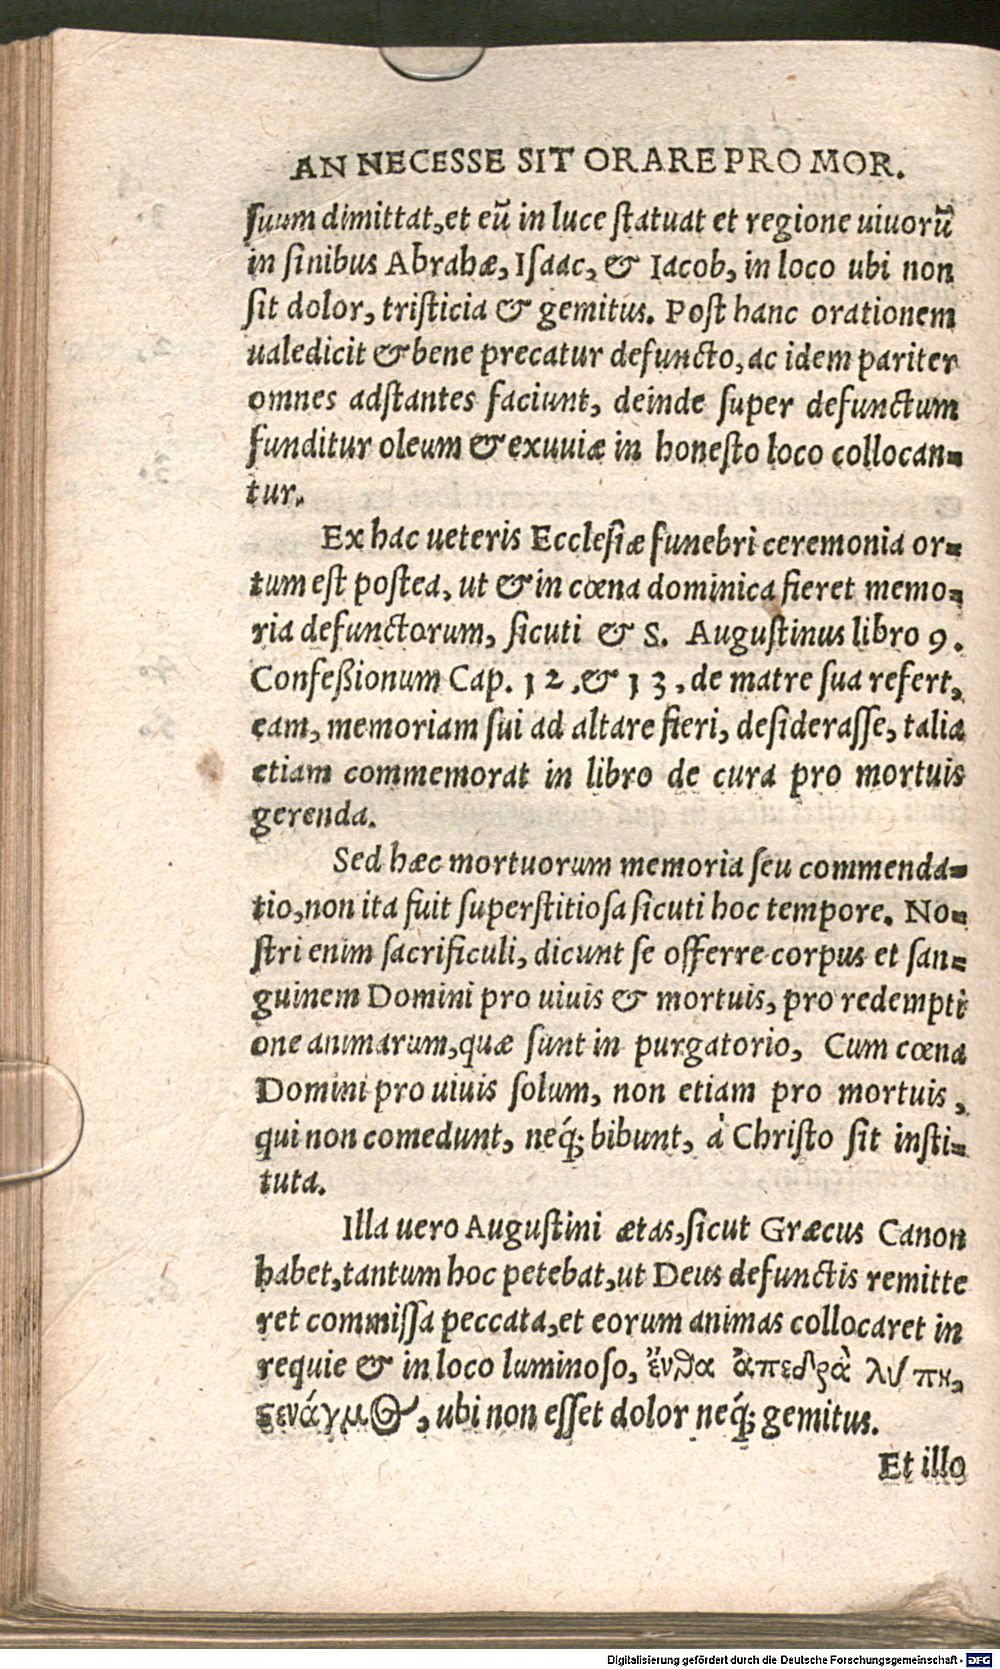 AN NECESSE SIT ORARE PRO MOR.
suum dimittat, et eũ in luce statuat et regione uiuorũ
in sinibus Abrahæ, Isaac, & Iacob, in loco ubi non
sit dolor, tristicia & gemitus. Post hanc orationem
ualedicit & bene precatur defuncto, ac idem pariter
omnes adstantes faciunt, deinde super defunctum
funditur oleum & exuuiæ in honesto loco collocan=
tur.
Ex hac ueteris Ecclesiæ funebri ceremonia or=
tum est postea, ut & in cœna dominica fieret memo=
ria defunctorum, sicuti & S. Augustinus libro 9.
Confeßionum Cap. 12, & 13, de matre sua refert,
eam, memoriam sui ad altare fieri, desiderasse, talia
etiam commemorat in libro de cura pro mortuis
gerenda.
Sed hæc mortuorum memoria seu commenda=
tio, non ita fuit superstitiosa sicuti hoc tempore. No=
stri enim sacrificuli, dicunt se offerre corpus et san=
guinem Domini pro uiuis & mortuis, pro redempti
one animarum, quæ sunt in purgatorio, Cum cœna
Domini pro uiuis solum, non etiam pro mortuis,
qui non comedunt, neq́; bibunt, à Christo sit insti=
tuta.
Illa uero Augustini ætas, sicut Græcus Canon
habet, tantum hoc petebat, ut Deus defunctis remitte
ret commissa peccata, et eorum animas collocaret in
requie & in loco luminoso, ἔνθα ἀπεδρὰ λύπη,
ϛενάγμος, ubi non esset dolor neq́; gemitus.
Et illo
Digitalisierung gefördert durch die Deutsche Forschungsgemeinschaft - DFG